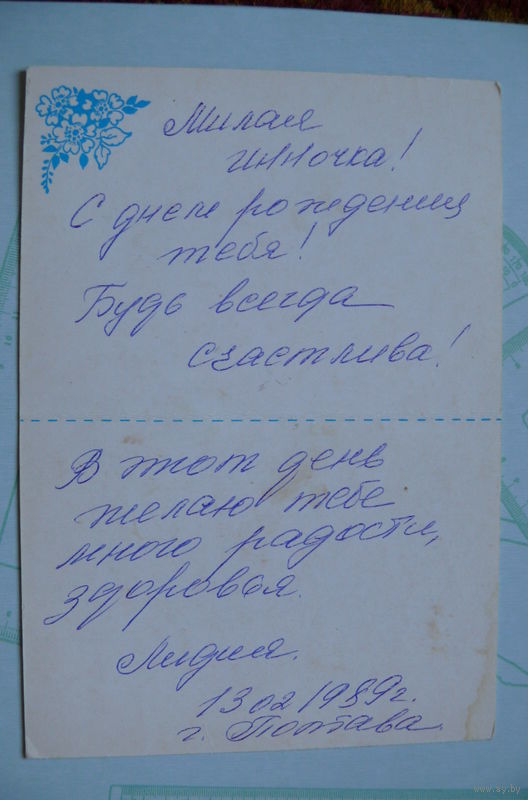 Милая
Инночка!
С днем рождения
тебя!
Будь всегда
счастлива!
В этот день
желаю тебе
много радости,
здоровья.
Лидия.
13 02 1989г.
г. Полтава.
www.ay.by